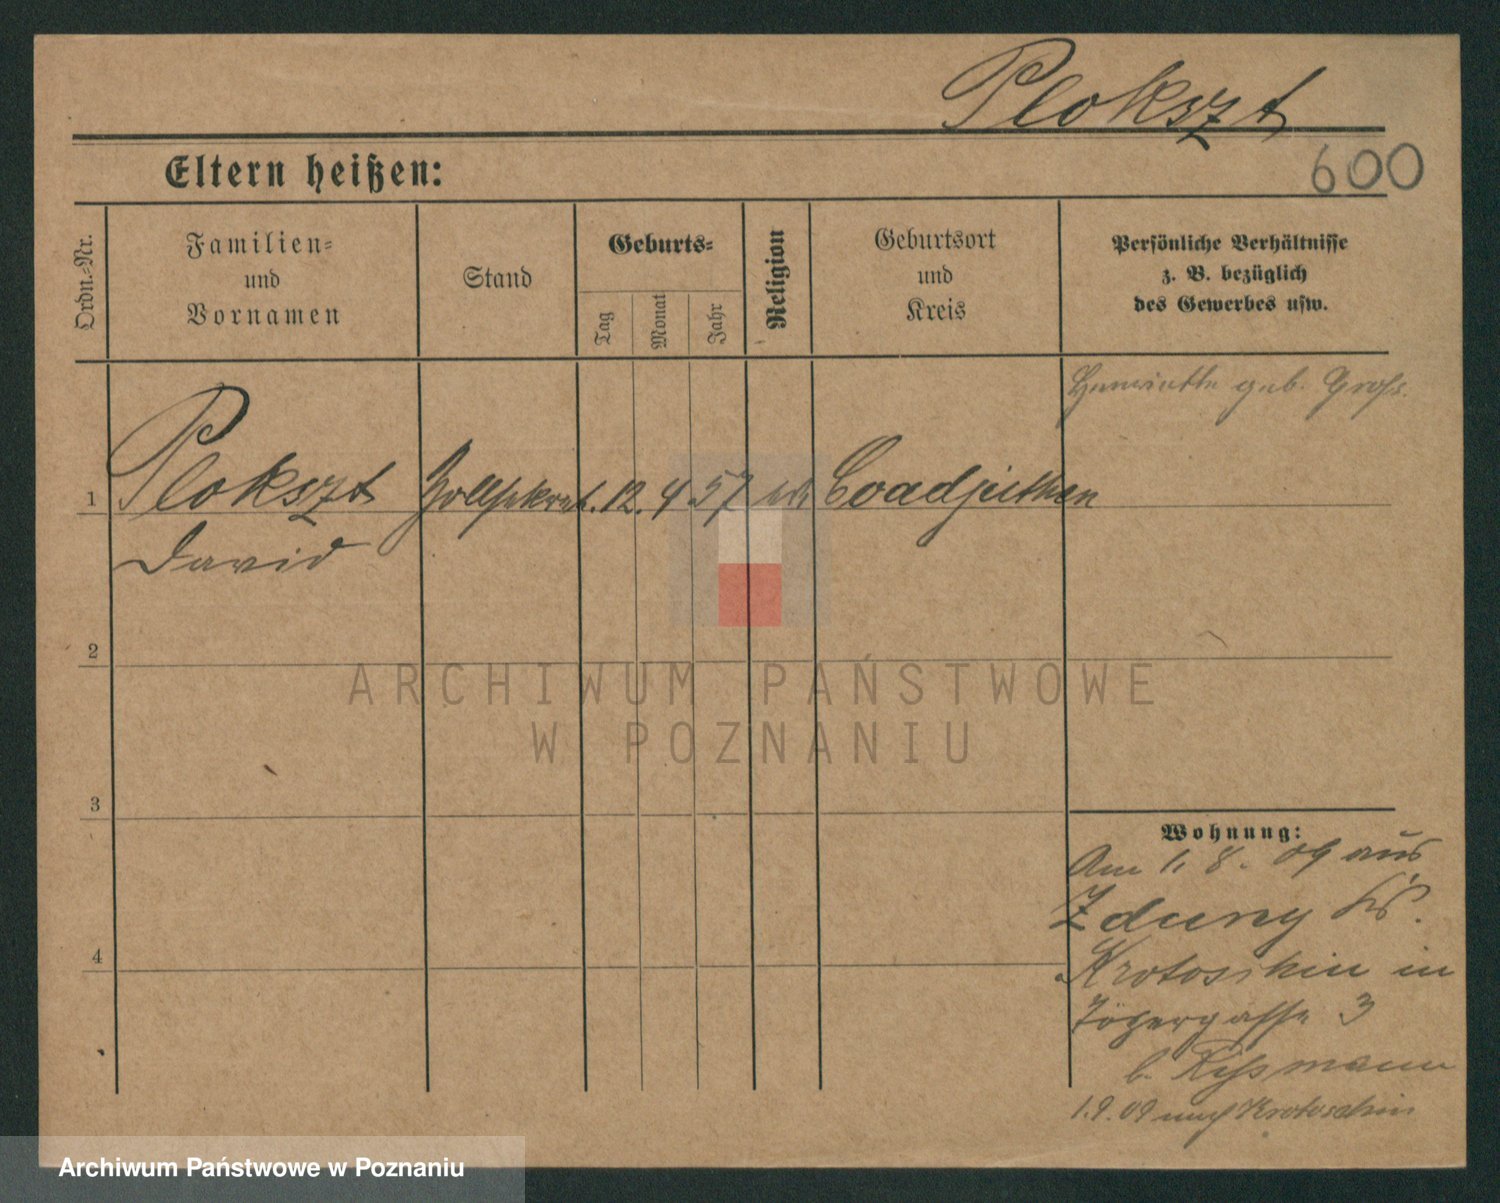 Plokszt
Eltern heißen:
600
Ordn.-Nr.
Familien-
und
Vornamen
Stand
Geburts-
Tag
Monat
Jahr
Religion
Geburtsort
und
Kreis
Persönliche Verhältnisse
z. B. bezüglich
des Gewerbes usw.
Henriette geb. Groß.
1 Plokszt Zollsekret. 12. 4. 57 Coadjuthen
David
2
3
4
Wohnung:
Am 1. 8. 09 aus
Zduny Kr.
Krotoschin in
3
b. Rißmann
1.9.09 nach Krotoschin
ARCHIWUM PAŃSTWOWE
W POZNANIU
Archiwum Państwowe w Poznaniu